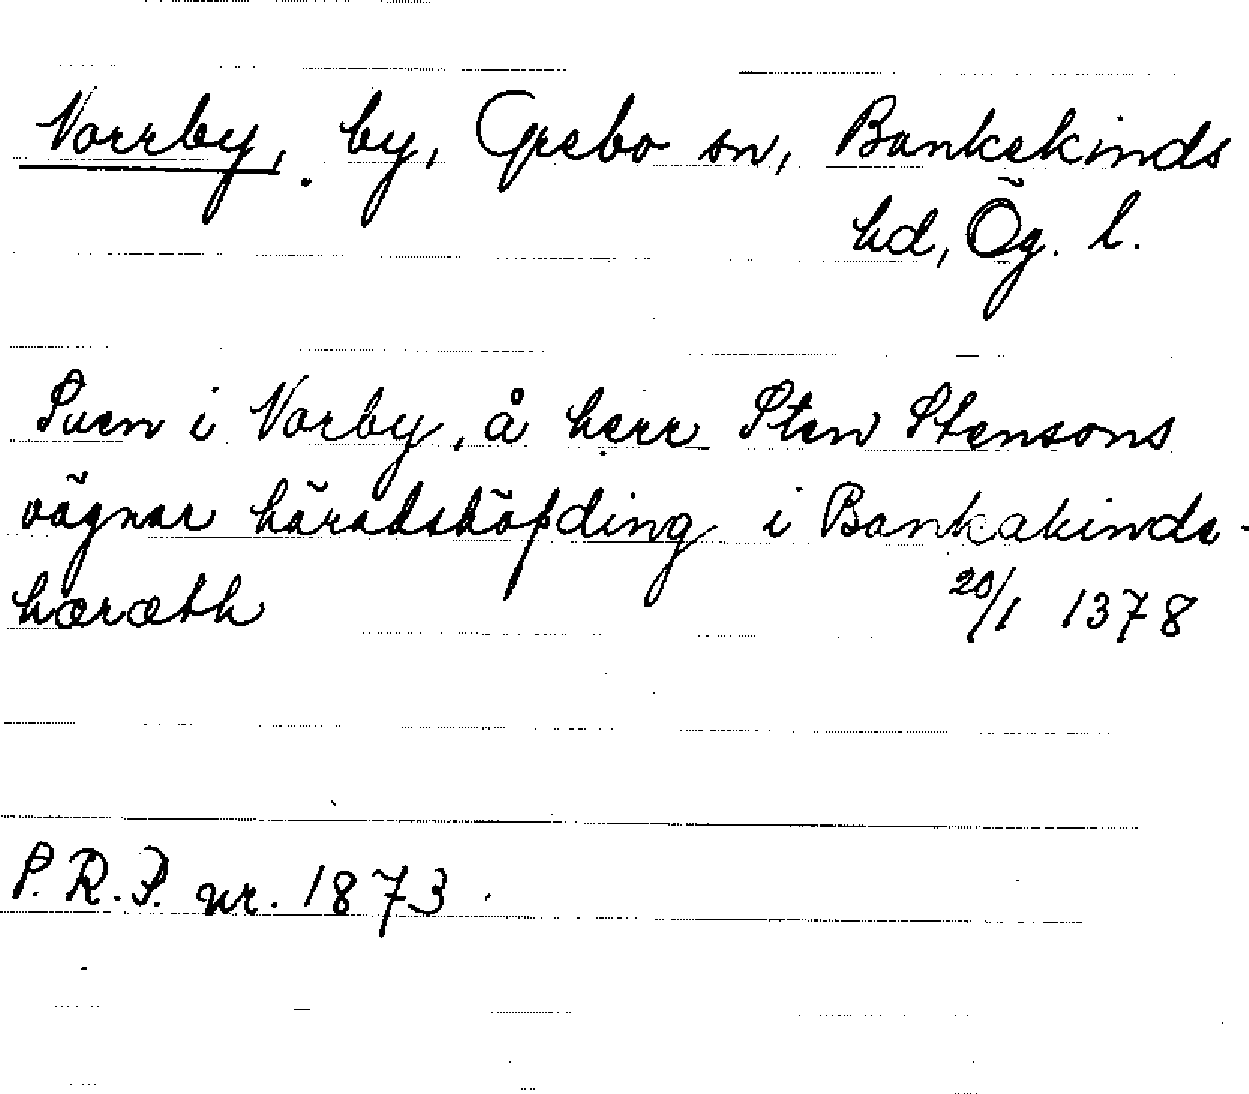 Norrby, by, Grebo sn, Bankekinds
hd, Ög. l.
Sven i Norby, å herr Sten Stensons
vägnar häradshöfding i Bankakinds-
hæræth 20/1 1378
P.R.P. nr. 1873.